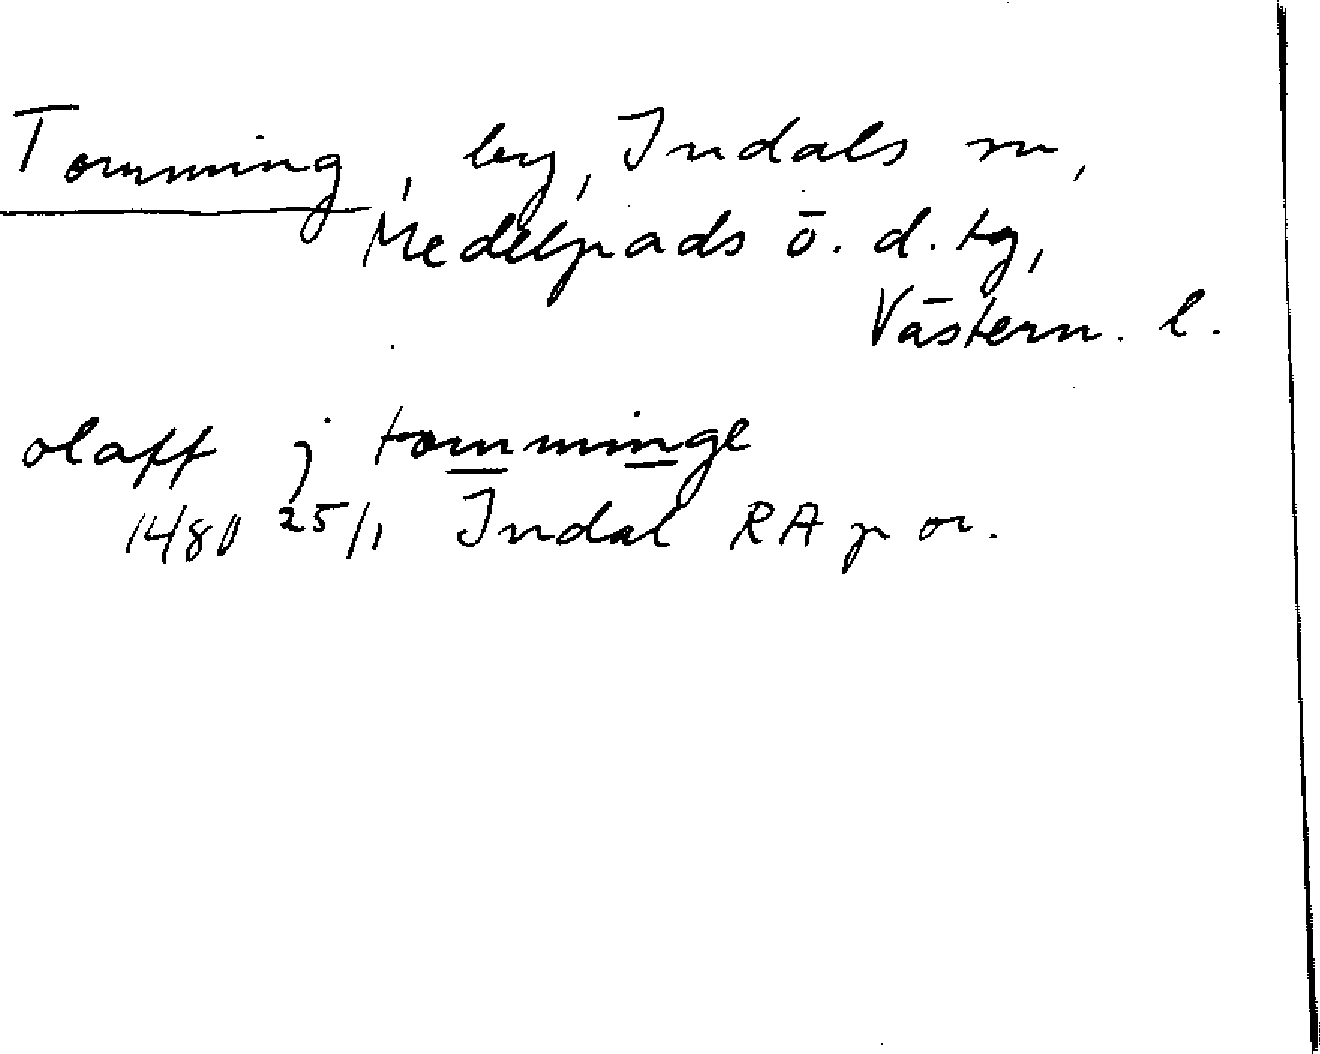 Tomming, by, Indals sn,
Medelpads ö. d. tg,
Västern. l.
olaff j tomminge
1480 25/1 Indal RA p or.